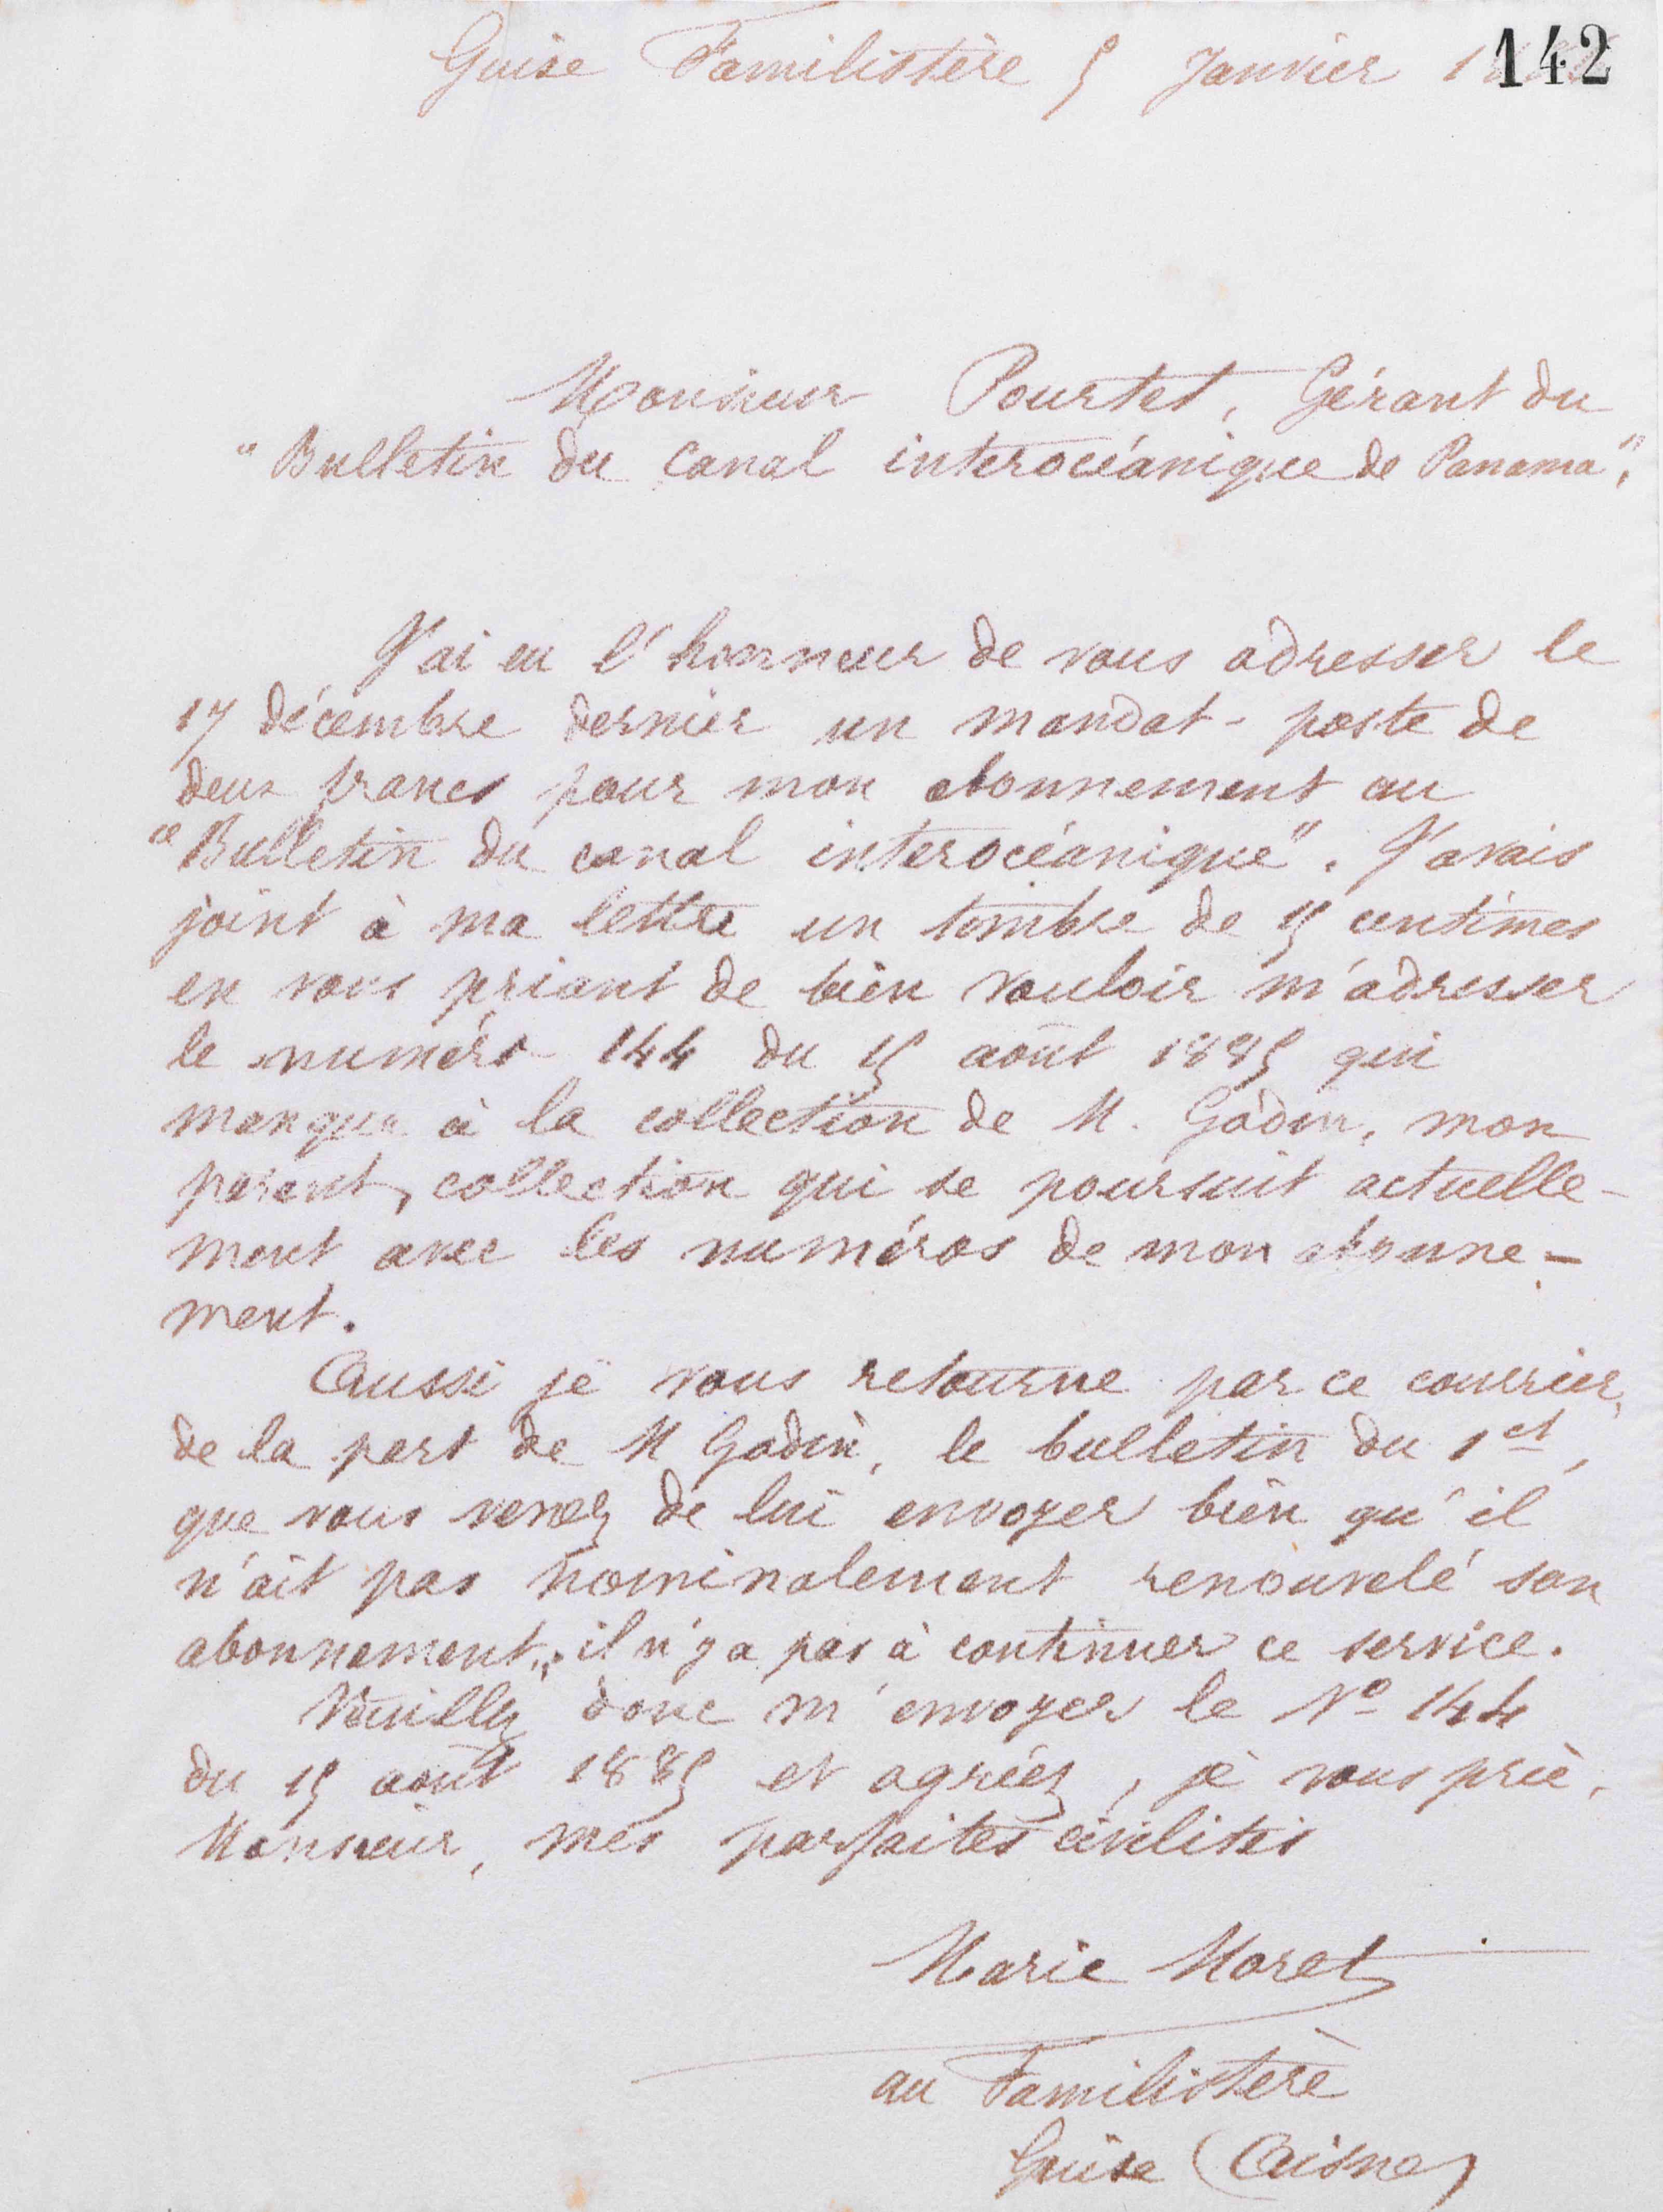 Guise Familistère 5 Janvier 142
Monsieur Pourtet, Gérant du
"Bulletin du Canal interocéanique de Panama",
J'ai eu l'honneur de vous adresser le
17 décembre dernier un mandat-poste de
deux francs pour mon abonnement au
"Bulletin du canal interocéanique". J'avais
joint à ma lettre un timbre de 15 centimes
en vous priant de bien vouloir m'adresser
le numéro 144 du 15 août 1885 qui
manque à la collection de M. Godin, mon
parent, collection qui se poursuit actuelle-
ment avec les numéros de mon abonne-
ment.
Aussi je vous retourne par ce courrier,
de la part de M Godin, le bulletin du 1er,
que vous venez de lui envoyer bien qu'il
n'ait pas nominalement renouvelé son
abonnement; il n'y a pas à continuer ce service.
Veuillez donc m'envoyer le No 144
du 15 août 1885 et agréez, je vous prie,
Monsieur, mes parfaites civilités
Marie Moret
au Familistère
Guise (Aisne)